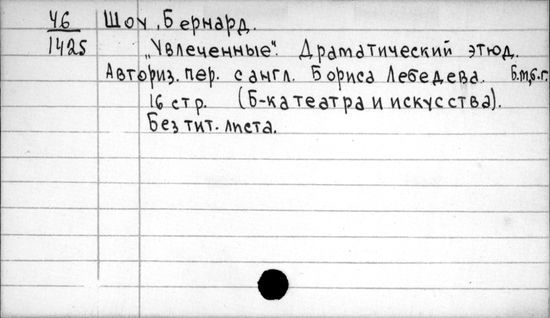 46 Шоу, Бернард.
1425
„Увлеченные“. Драматический этюд.
Авториз. пер. с англ. Бориса Лебедева. б.м.,б.г.
16 стр. (Б-ка театра и искусства).
Без тит. листа.